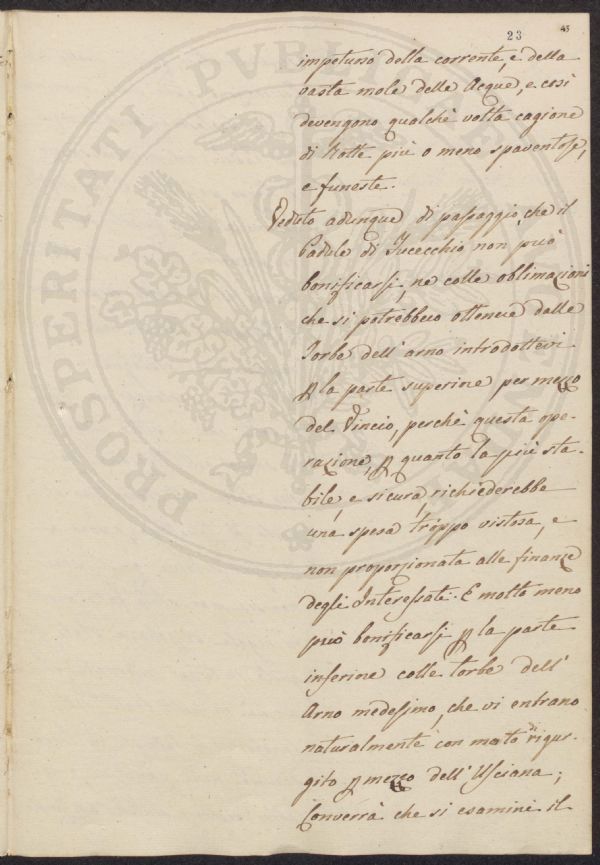 23 45
impetuso della corrente, e della
vasta mole delle Acque, e così
devengono qualche volta cagione
di Rotte più o meno spaventose,
e funeste.
Veduto adunque di passaggio, che il
Padule di Fucecchio non può
bonificarsi, ne colle oblimazioni
che si potrebbero ottenere dalle
Torbe dell' arno introdottevi
ꝑ la parte superine per mezzo
del Vincio, perchè questa ope-
razione, ꝑ quanto la più sta-
bile, e sicura, richiederebbe
una spesa troppo vistosa, e
non proporzionata alle finanze
degli Interessati. E molto meno
può bonificarsi ꝑ la parte
inferine colle torbe dell'
Arno medesimo, che vi entrano
naturalmente con moto di rigur-
gito ꝑ mezzo dell' Usciana;
Converrà che si esamini il
PROSPERITATI PVBLI